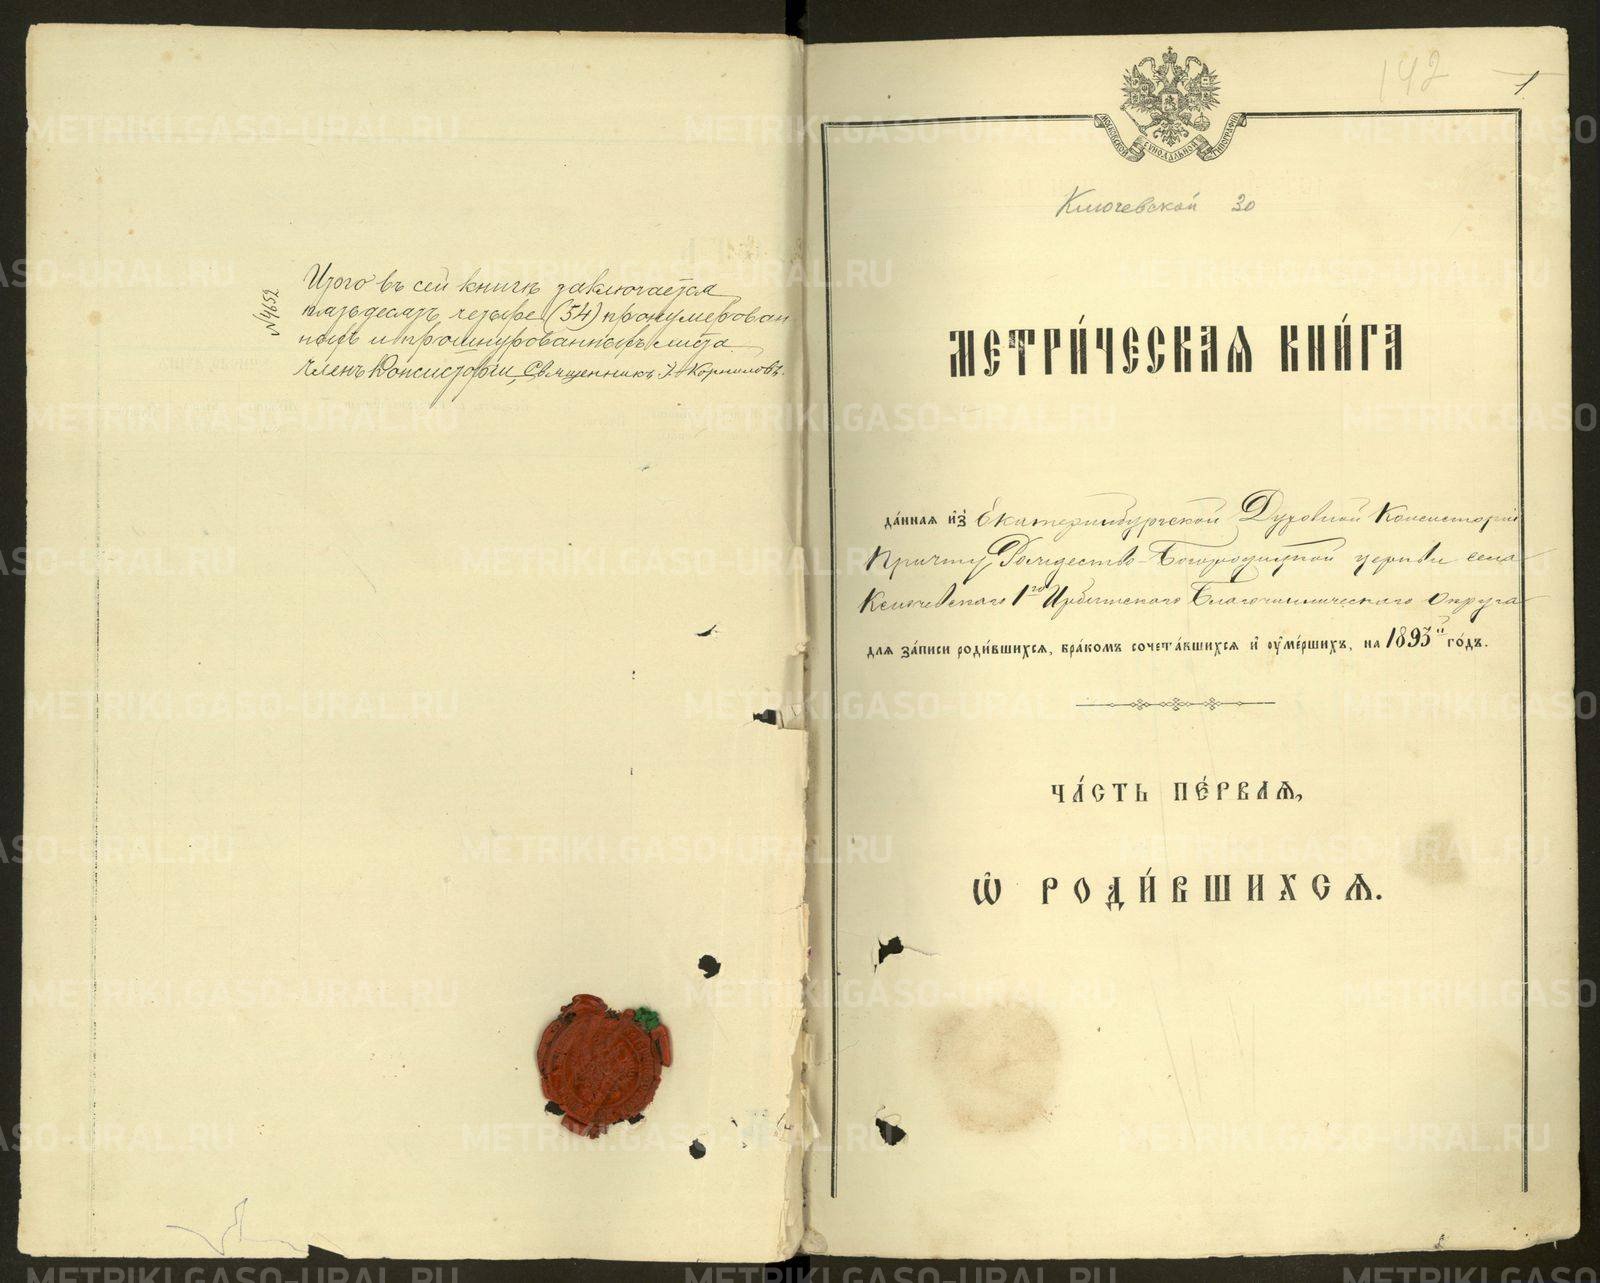 №4652
Итого въ сей книгѣ заключается
пятьдесятъ четыре (54) пронумерован
ныхъ и прошнурованныхъ листа.
Членъ Консисторіи, Священникъ І. Корниловъ.
142
1
МОСКОВСКОЙ СѴНОДАЛЬНОЙ ТИПОГРАФІИ
Ключевской 30
МЕТРИ́ЧЕСКАѦ КНИ́ГА
да́ннаѧ и҆з̾ Екатеринбургской Духовной Консисторіи
Причту Рождество-Богородицкой церкви села
Ключевскаго 1го Ирбитскаго Благочинническаго Округа
длѧ за́писи роди́вшихсѧ, бра́комъ сочета́вшихсѧ и҆ ᲂу҆ме́ршихъ, на 1893й го́дъ.
ЧА́СТЬ ПЕ́РВАѦ,
Ѽ РОДИ́ВШИХСѦ.
METRIKI.GASO-URAL.RU